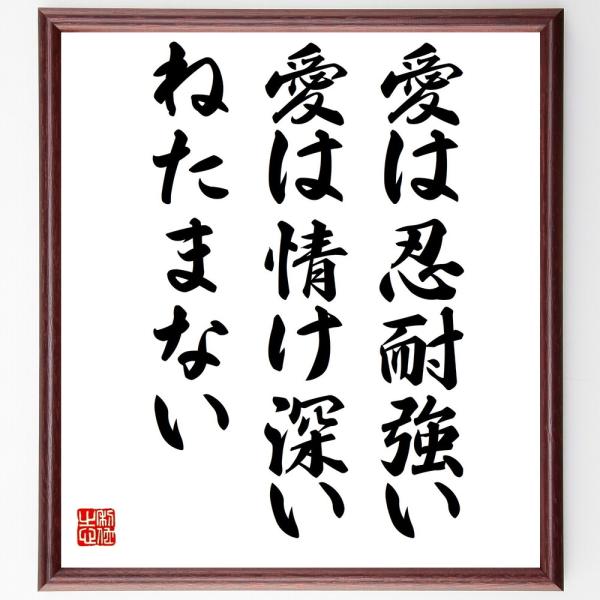 愛は忍耐強い
愛は情け深い
ねたまない